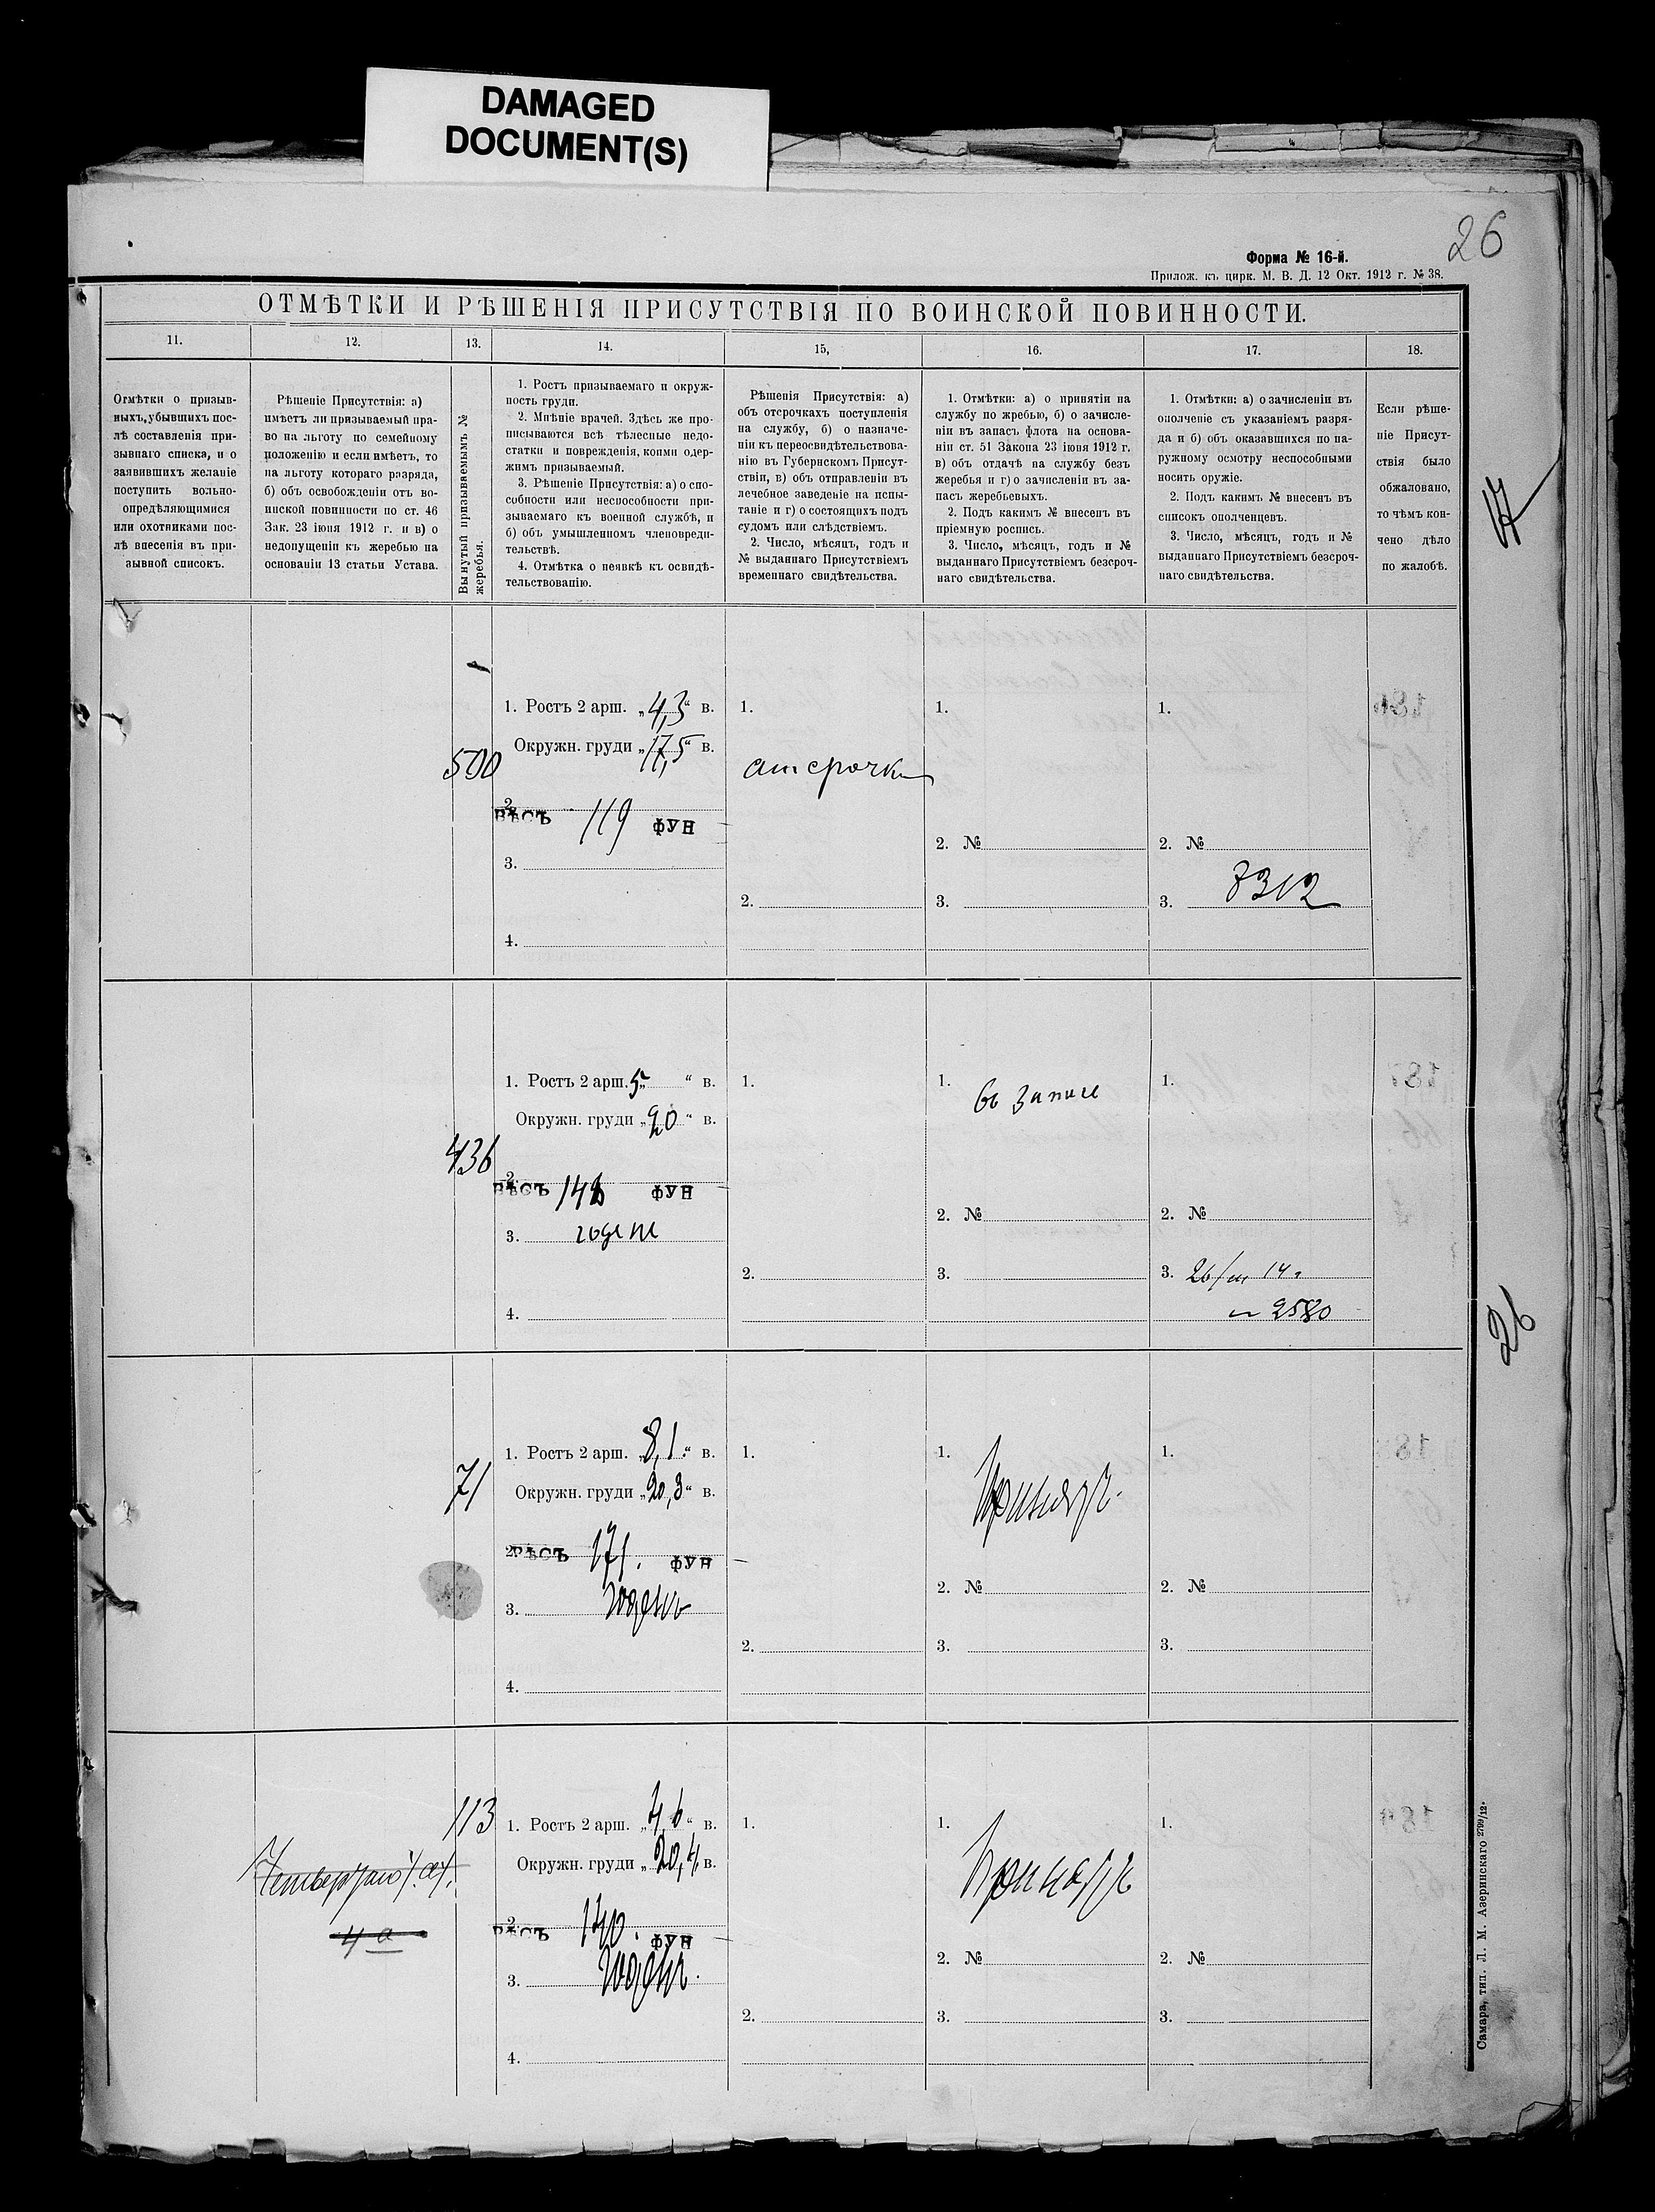 DAMAGED
DOCUMENT(S)
26
Форма № 16-й.
Прилож. къ цирк. М. В. Д. 12 Окт. 1912 г. № 38.
ОТМѢТКИ И РѢШЕНІЯ ПРИСУТСТВІЯ ПО ВОИНСКОЙ ПОВИННОСТИ.
11.
12.
13.
14.
15,
16.
17.
18.
Отмѣтки о призыв-
ныхъ, убывшихъ пос-
лѣ составленія при-
зывнаго списка, и о
заявившихъ желаніе
поступить вольно-
опредѣляющимися
или охотниками пос-
лѣ внесенія въ при-
зывной списокъ.
Рѣшеніе Присутствія: а)
имѣетъ ли призываемый пра-
во на льготу по семейному
положенію и если имѣетъ, то
на льготу котораго разряда,
б) объ освобожденіи отъ во-
инской повинности по ст. 46
Зак. 23 іюня 1912 г. и в) о
недопущеніи къ жеребью на
основаніи 13 статьи Устава.
Вынутый призываемымъ №
жеребья.
1. Ростъ призываемаго и окруж-
ность груди.
2. Мнѣніе врачей. Здѣсь же про-
писываются всѣ тѣлесные недо-
статки и поврежденія, коими одер-
жимъ призываемый.
3. Рѣшеніе Присутствія: а) о спо-
собности или неспособности при-
зываемаго къ военной службѣ, и
б) объ умышленномъ членовреди-
тельствѣ.
4. Отмѣтка о неявкѣ къ освидѣ-
тельствованію.
Рѣшенія Присутствія: а)
объ отсрочкахъ поступленія
на службу, б) о назначе-
ніи къ переосвидѣтельствова-
нію въ Губернскомъ Присут-
ствіи, в) объ отправленіи въ
лечебное заведеніе на испы-
таніе и г) о состоящихъ подъ
судомъ или слѣдствіемъ.
2. Число, мѣсяцъ, годъ и
№ выданнаго Присутствіемъ
временнаго свидѣтельства.
1. Отмѣтки: а) о принятіи на
службу по жребью, б) о зачисле-
ніи въ запасъ флота на основа-
ніи ст. 51 Закона 23 іюня 1912 г.
в) объ отдачѣ на службу безъ
жеребья и г) о зачисленіи въ за-
пасъ жеребьевыхъ.
2. Подъ какимъ № внесенъ въ
пріемную роспись.
3. Число, мѣсяцъ, годъ и №
выданнаго Присутствіемъ безсроч-
наго свидѣтельства.
1. Отмѣтки: а) о зачисленіи въ
ополченіе съ указаніемъ разря-
да и б) объ оказавшихся по на-
ружному осмотру неспособными
носить оружіе.
2. Подъ какимъ № внесенъ въ
списокъ ополченцевъ.
3. Число, мѣсяцъ, годъ и №
выданнаго Присутствіемъ безсроч-
наго свидѣтельства.
Если рѣше-
ніе Присут-
ствія было
обжаловано,
то чѣмъ кон-
чено дѣло
по жалобѣ.
17
500
1. Ростъ 2 арш. „4,3“ в.
Окружн. груди „17,5“ в.
2.
ВѢСЪ 119 ФУН
3.
4.
1.
отсрочка
2.
1.
2. №
3.
1.
2. №
3. 7312
436
1. Ростъ 2 арш. 5„ “ в.
Окружн. груди „20“ в.
2.
ВѢСЪ 148 ФУН
3. годенъ
4.
1.
2.
1. въ запасъ
2. №
3.
1.
2. №
3. 26/III 14 г
№ 2580
26
71
1. Ростъ 2 арш. „8,1“ в.
Окружн. груди „20,3“ в.
2. ВѢСЪ 171. ФУН
3. годенъ
4.
1.
2.
1. Принятъ.
2. №
3.
1.
2. №
3.
113
4 а
1. Ростъ 2 арш. „4,6“ в.
Окружн. груди „20,4„ в.
2.
ВѢСЪ 140. ФУН
3. годенъ.
4.
1.
2.
1. Принятъ
2. №
3.
1.
2. №
3.
Самара, тип. Л. М. Азеринскаго 2799/12.